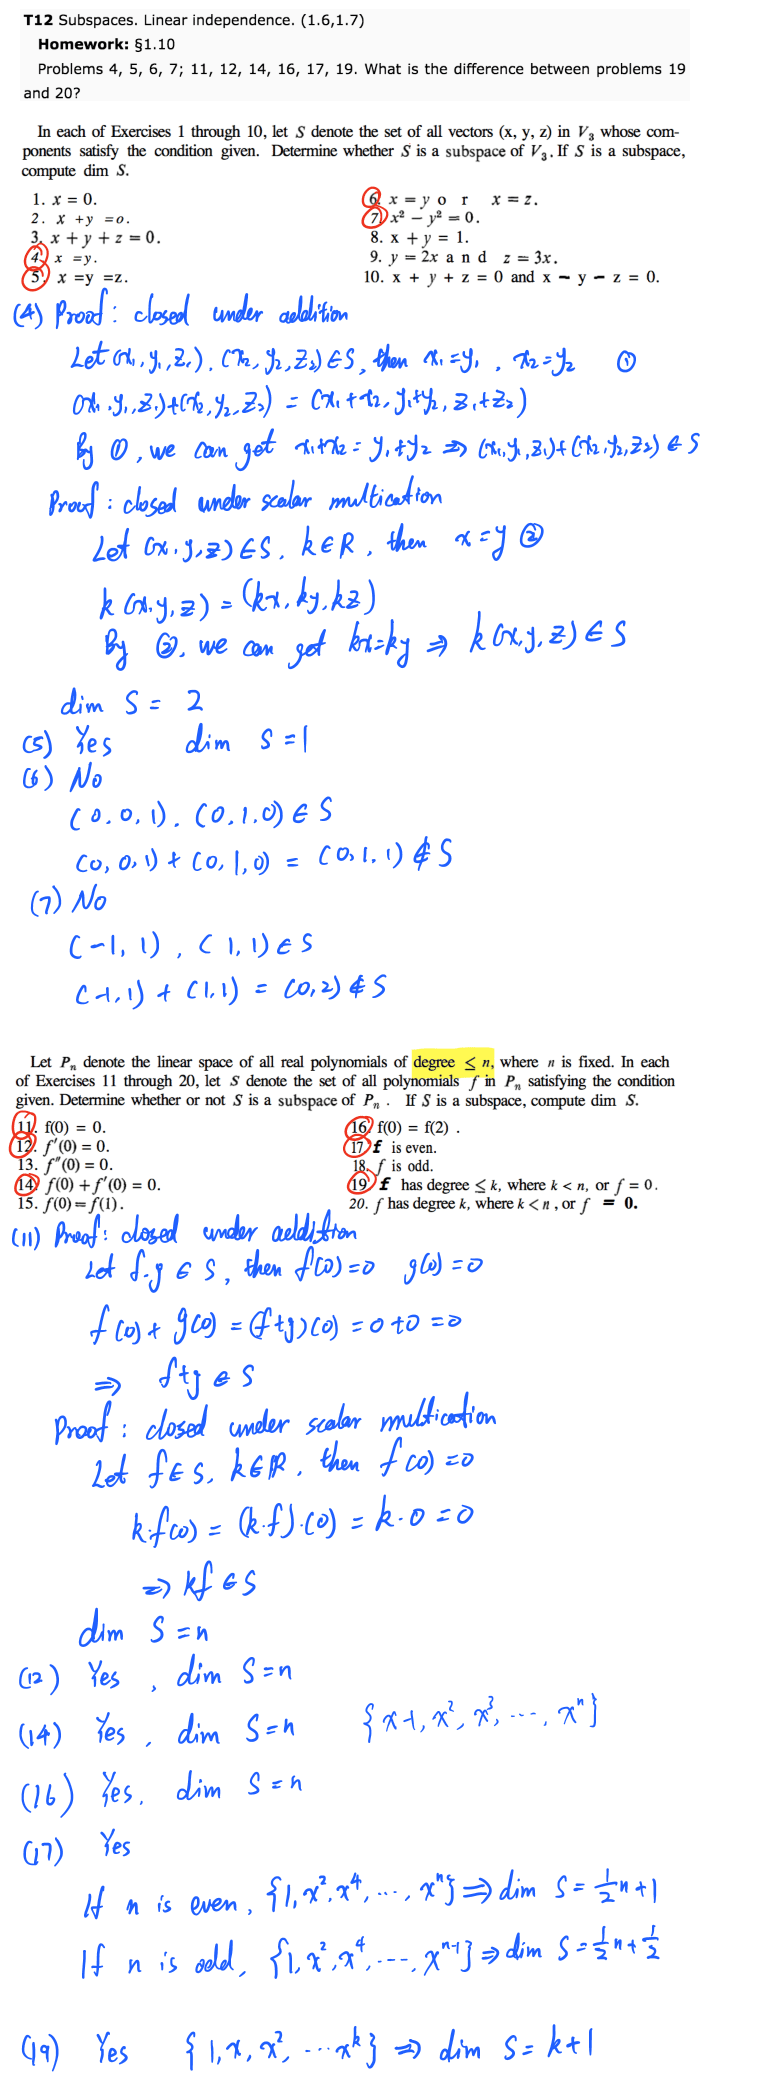 T12 Subspaces. Linear independence. (1.6,1.7)
Homework: §1.10
Problems 4, 5, 6, 7; 11, 12, 14, 16, 17, 19. What is the difference between problems 19
and 20?
In each of Exercises 1 through 10, let S denote the set of all vectors (x, y, z) in V₃ whose com-
ponents satisfy the condition given. Determine whether S is a subspace of V₃. If S is a subspace,
compute dim S.
1. x = 0.
2. x +y =o.
3. x + y + z = 0.
4. x =y.
5. x =y =z.
6. x = y o r x = z.
7. x² − y² = 0.
8. x + y = 1.
9. y = 2x a n d z = 3x.
10. x + y + z = 0 and x − y − z = 0.
(4) Proof : closed under addition
Let (x₁, y₁, z₁), (x₂, y₂, z₂) ∈ S, then x₁ = y₁, x₂ = y₂ ①
(x₁, y₁, z₁)+(x₂, y₂, z₂) = (x₁+x₂, y₁+y₂, z₁+z₂)
By ①, we can get x₁+x₂ = y₁+y₂ ⇒ (x₁, y₁, z₁)+(x₂, y₂, z₂) ∈ S
Proof : closed under scalar multication
Let (x, y, z) ∈ S, k ∈ R, then x = y ②
k (x, y, z) = (kx, ky, kz)
By ②, we can get kx=ky ⇒ k(x, y, z) ∈ S
dim S = 2
(5) Yes dim S = 1
(6) No
(0, 0, 1), (0, 1, 0) ∈ S
(0, 0, 1) + (0, 1, 0) = (0, 1, 1) ∉ S
(7) No
(-1, 1), (1, 1) ∈ S
(-1, 1) + (1, 1) = (0, 2) ∉ S
Let Pₙ denote the linear space of all real polynomials of degree ≤ n, where n is fixed. In each
of Exercises 11 through 20, let S denote the set of all polynomials f in Pₙ satisfying the condition
given. Determine whether or not S is a subspace of Pₙ . If S is a subspace, compute dim S.
11. f(0) = 0.
12. f′(0) = 0.
13. f″(0) = 0.
14. f(0) +f′(0) = 0.
15. f(0)=f(1).
16. f(0) = f(2) .
17. f is even.
18. f is odd.
19. f has degree ≤ k, where k < n, or f = 0.
20. f has degree k, where k < n , or f = 0.
(11) Proof : closed under addition
Let f, g ∈ S, then f(0) = 0 g(0) = 0
f(0) + g(0) = (f+g)(0) = 0 + 0 = 0
⇒ f+g ∈ S
Proof : closed under scalar multication
Let f ∈ S, k ∈ R, then f(0) = 0
k·f(0) = (k·f)·(0) = k·0 = 0
⇒ kf ∈ S
dim S = n
(12) Yes, dim S = n
(14) Yes, dim S = n {x-1, x², x³, ···, xⁿ}
(16) Yes, dim S = n
(17) Yes
If n is even, {1, x², x⁴, ···, xⁿ} ⇒ dim S = ½n + 1
If n is odd, {1, x², x⁴, ···, xⁿ⁻¹} ⇒ dim S = ½n + ½
(19) Yes {1, x, x², ···xᵏ} ⇒ dim S = k+1